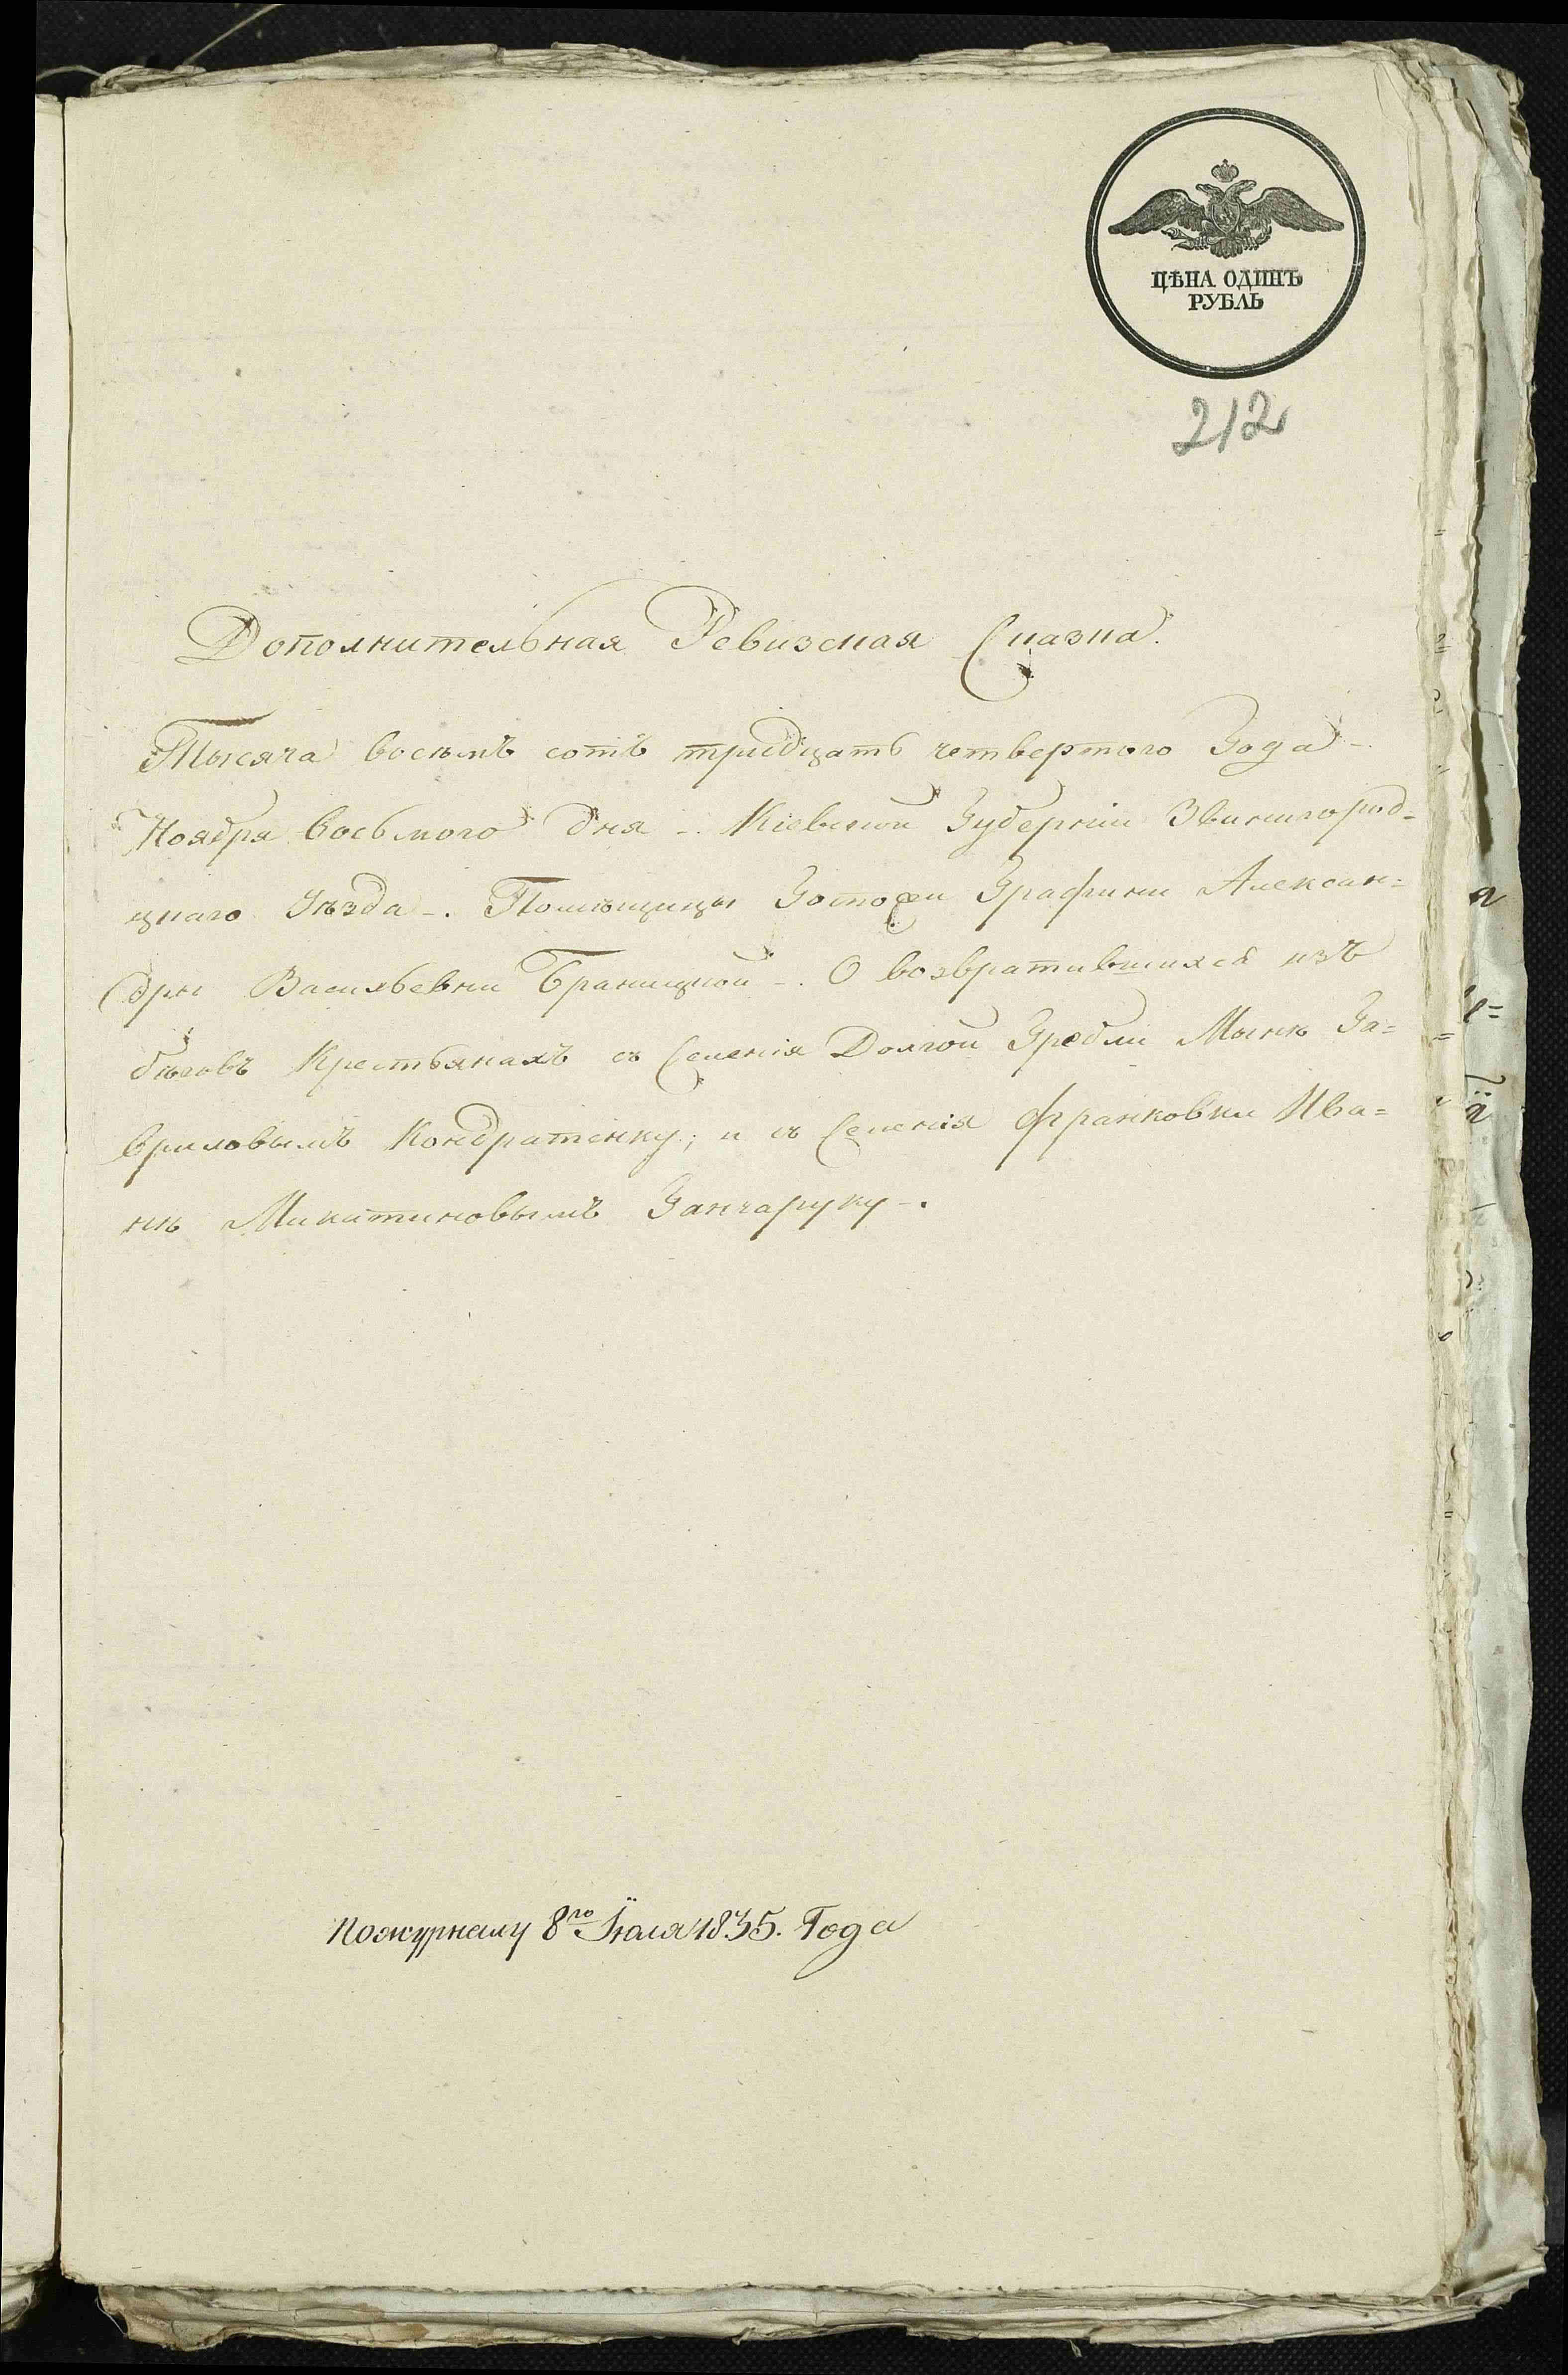 ЦѢНА ОДИНЪ
РУБЛЬ
212
Дополнительная Ревизская Сказка.
Тысяча восемъ сотъ тридцать четвертого Года -.
Ноября восьмого дня -. Кіевской Губерніи Звинигород=
цкаго Уѣзда -. Помѣщицы Госпожи Графини Алексан=
дры Васильевни Браницкой -. О возвратившихся изъ
бѣговъ Крестьянахъ съ Селенія Долгой Гребли Мынѣ Га=
вриловымъ Кондратенку; и съ Селенія Франковки Ива=
нѣ Микитиновымъ Ганчаруку -.
Пожурналу 8го Іюля 1835. Года